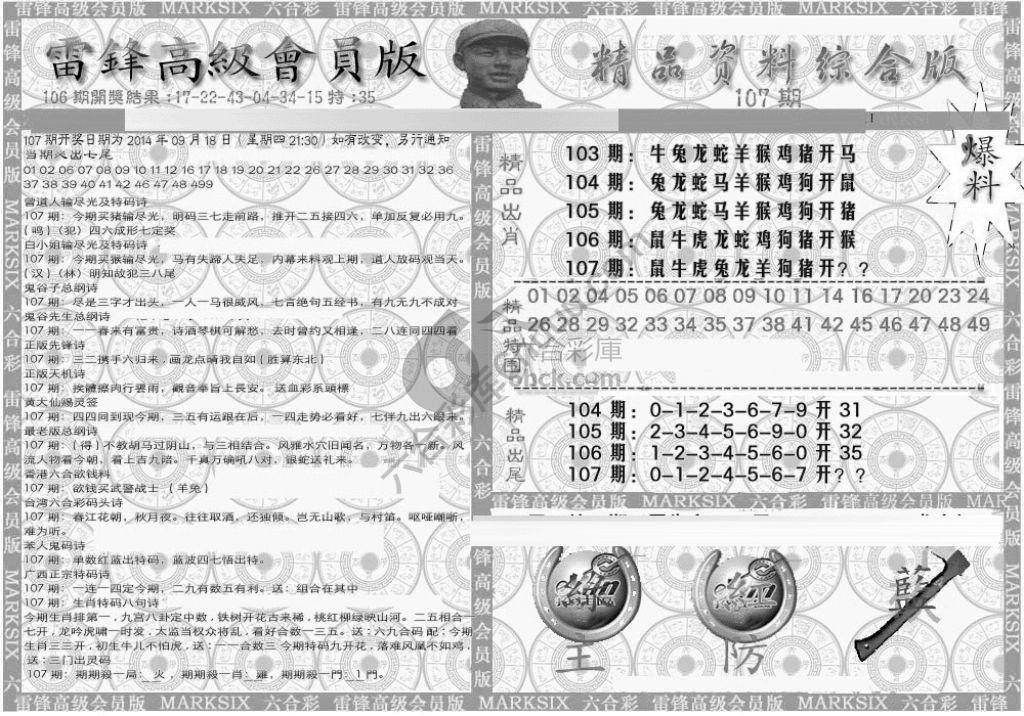 雷锋高级会员版 MARKSIX 六合彩 雷锋高级会员版 MARKSIX 六合彩 雷锋高级会员版 MARKSIX 六合彩 雷锋
雷鋒高級會員版
精品資料綜合版
106 期開獎結果:17-22-43-04-34-15 特:35
107 期
107 期开奖日期为 2014 年 09 月 18 日（星期四 21:30）如有改变，另行通知
01 02 06 07 08 09 10 11 12 16 17 18 19 20 21 22 26 27 28 29 30 31 32 36
37 38 39 40 41 42 46 47 48 499
曾道人输尽光及特码诗
107 期：今期买猪输尽光，明码三七走前路，推开二五接四六，单加反复必用九。
{鸣}（犯）四六成形七定奖
白小姐输尽光及特码诗
107 期：今期买猴输尽光，马有失蹄人失足，内幕来料观上期，道人放码观当天。
{汉}（林）明知故犯三八尾
鬼谷子总纲诗
107 期：尽是三字才出头，一人一马很威风，七言绝句五经书，有九无九不成对
鬼谷先生总纲诗
107 期：一一春来有富贵，诗酒琴棋可解愁，去时曾约又相逢，二八连同四四看
正版先锋诗
107 期：三二携手六归来，画龙点睛我自如{胜算东北}
正版天机诗
107 期：挨體擦肉行雲雨，觀音奉旨上長安。送血彩系頭標
黄大仙赐灵签
107 期：四四同到现今期，三五有运跟在后，一四走势必看好，七伴九出六眼来。
最老版总纲诗
107 期：{得}不教胡马过阴山，与三相结合。风雅水穴旧闻名，万物各一新。风
流人物看今朝，看上吉九陪。千真万确吼八对，银蛇送礼来。
香港六合欲钱料
107 期：欲钱买武警战士 {羊兔}
台湾六合彩码头诗
107 期：春江花朝，秋月夜。往往取酒，还独倾。岂无山歌，与村笛。呕哑嘲哳，
难为听。
本人鬼码诗
107 期：单数红蓝出特码，蓝波四七悟出特。
广西正宗特码诗
107 期：一连一四定今期，二九有数五有利。送：组合在其中
107 期：生肖特码八句诗
今期生肖排第一，九宫八卦定中数，铁树开花古来稀，桃红柳绿映山河。二五相合
七开，龙吟虎啸一时发，太监当权众将乱，看好合数一三五。送：六九合码 配：今期
生肖三三开，初生牛儿不怕虎，送：一一合数三 今期特码九开花，落难凤凰不如鸡，
送：三门出灵码
107 期：期期殺一局：火，期期殺一肖：雞，期期殺一門：1 門。
精品出肖
103 期：牛兔龙蛇羊猴鸡猪开马
104 期：兔龙蛇马羊猴鸡狗开鼠
105 期：兔龙蛇马羊猴鸡狗开猪
106 期：鼠牛虎龙蛇鸡狗猪开猴
107 期：鼠牛虎兔龙羊狗猪开？？
爆料
精品特围
01 02 04 05 06 07 08 09 10 11 14 15 16 17 20 23 24
26 28 29 32 33 34 35 37 38 41 42 45 46 47 48 49
六合彩庫
精品出尾
104 期：0-1-2-3-6-7-9 开 31
105 期：2-3-4-5-6-9-0 开 32
106 期：1-2-3-4-5-6-0 开 35
107 期：0-1-2-4-5-6-7 开？？
雷锋高级会员版 MARKSIX 六合彩 雷锋高级会员版
主
防
藍
雷锋高级会员版 MARKSIX 六合彩 雷锋高级会员版 MARKSIX 六合彩 雷锋高级会员版 MARKSIX 六合彩 雷锋